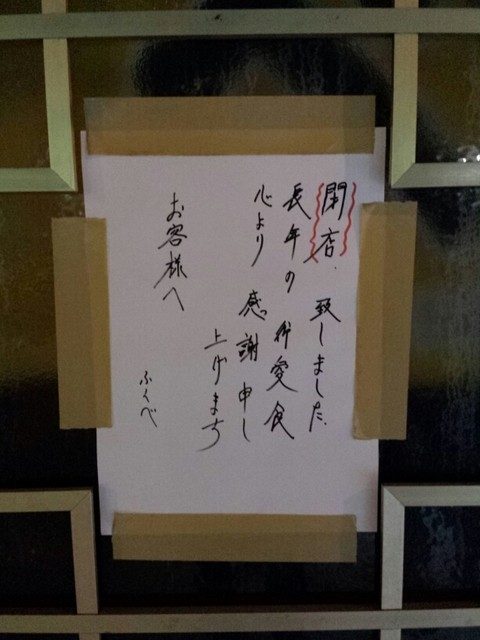 閉店 致しました
長年の 御愛食
心より 感謝申し
上げます
お客様へ
ふくべ